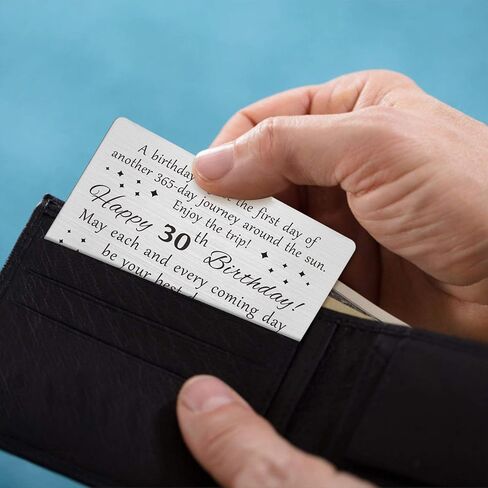 A birthday the first day of
another 365-day journey around the sun.
Enjoy the trip!
Happy 30th Birthday!
May each and every coming day
be your best